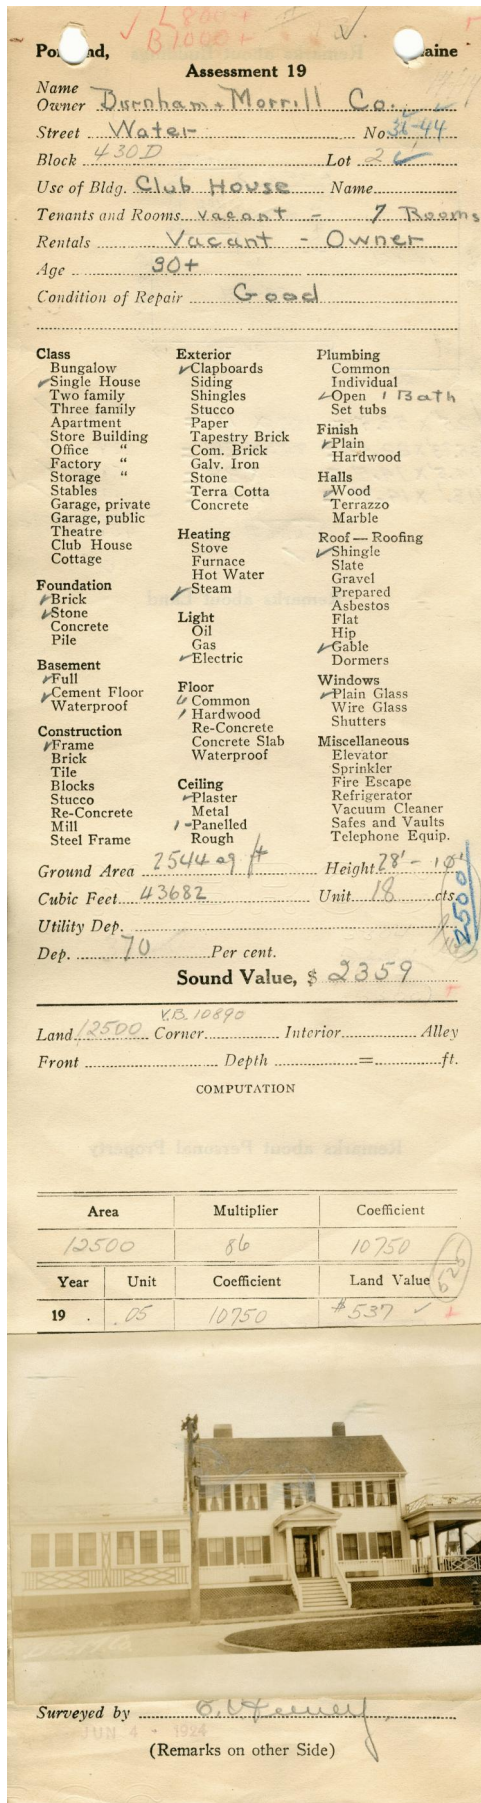 L 800 +
B 1000 +
Portland, Maine
Assessment 19
Name
Owner Burnham & Morrill Co.
Street Water No 36-44
Block 430D Lot 2
Use of Bldg. Club House Name
Tenants and Rooms Vacant - 7 Rooms
Rentals Vacant - Owner
Age 30+
Condition of Repair Good
Class
Bungalow
Single House
Two family
Three family
Apartment
Store Building
Office "
Factory "
Storage "
Stables
Garage, private
Garage, public
Theatre
Club House
Cottage
Foundation
Brick
Stone
Concrete
Pile
Basement
Full
Cement Floor
Waterproof
Construction
Frame
Brick
Tile
Blocks
Stucco
Re-Concrete
Mill
Steel Frame
Exterior
Clapboards
Siding
Shingles
Stucco
Paper
Tapestry Brick
Com. Brick
Galv. Iron
Stone
Terra Cotta
Concrete
Heating
Stove
Furnace
Hot Water
Steam
Light
Oil
Gas
Electric
Floor
6 Common
1 Hardwood
Re-Concrete
Concrete Slab
Waterproof
Ceiling
Plaster
Metal
1 - Panelled
Rough
Plumbing
Common
Individual
Open 1 Bath
Set tubs
Finish
Plain
Hardwood
Halls
Wood
Terrazzo
Marble
Roof — Roofing
Shingle
Slate
Gravel
Prepared
Asbestos
Flat
Hip
Gable
Dormers
Windows
Plain Glass
Wire Glass
Shutters
Miscellaneous
Elevator
Sprinkler
Fire Escape
Refrigerator
Vacuum Cleaner
Safes and Vaults
Telephone Equip.
Ground Area 2544 sq ft Height 28' - 10"
Cubic Feet 43682 Unit 18 cts.
2500
Utility Dep.
Dep. 70 Per cent.
Sound Value, $ 2359
V.B. 10890
Land 12500 Corner Interior Alley
Front Depth = ft.
COMPUTATION
Area Multiplier Coefficient
12500 86 10750
Year Unit Coefficient Land Value
525
19 . .05 10750 $537
Surveyed by
JUN 4 - 1924
(Remarks on other Side)